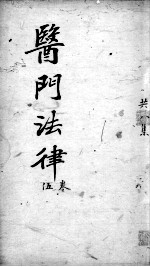 共八集
醫門法律
卷伍